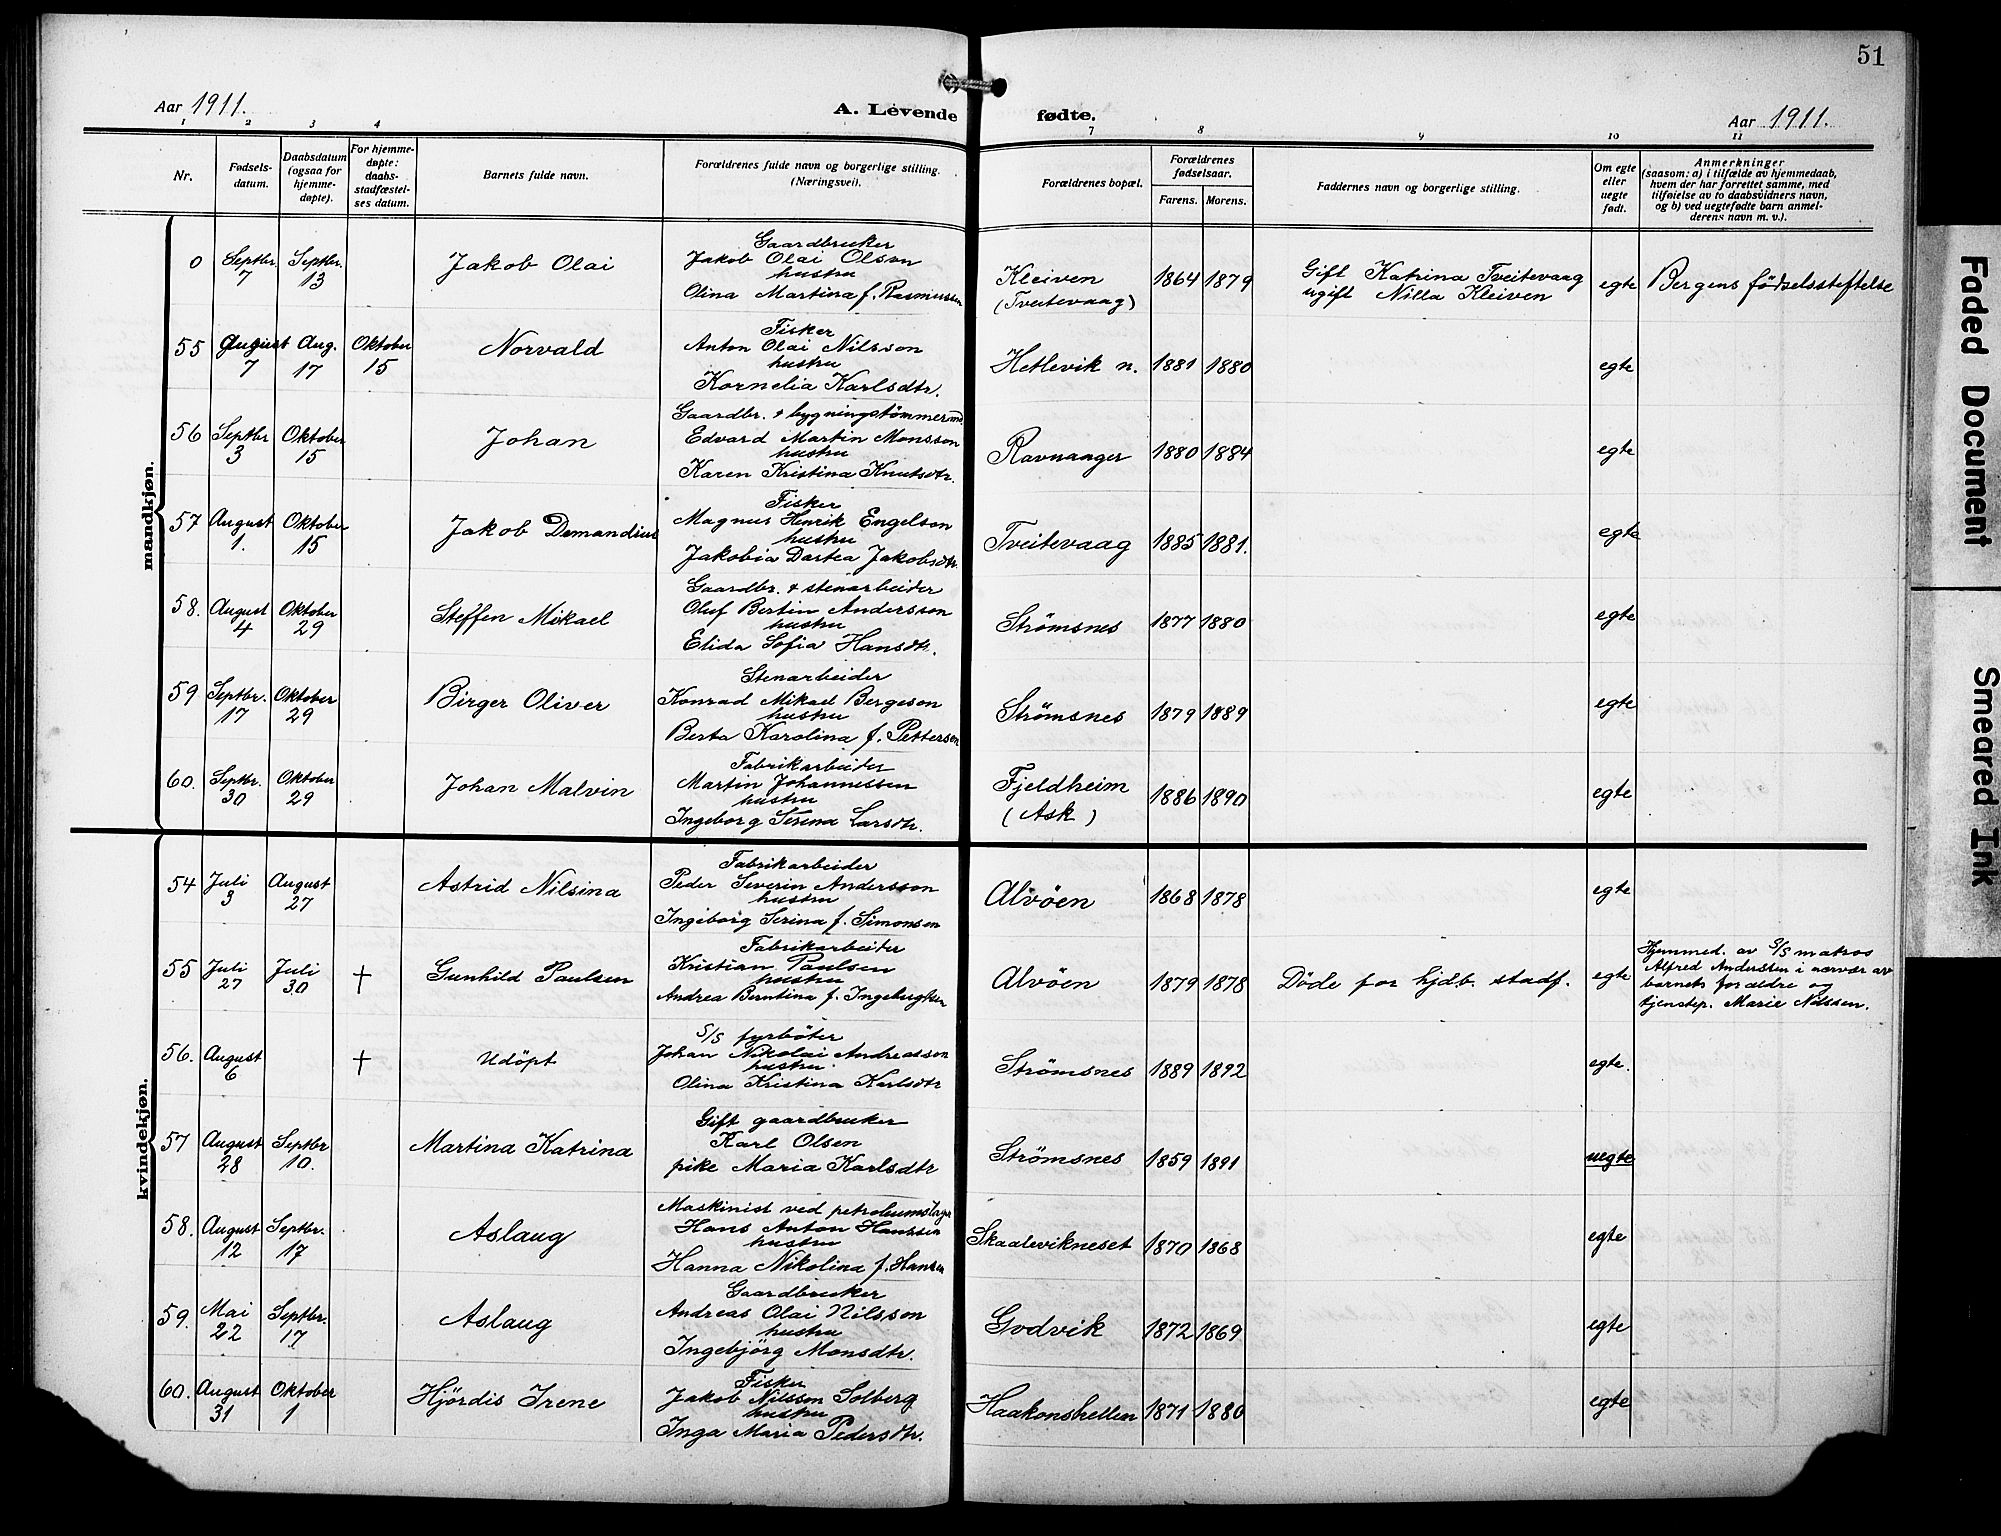 51
Aar 1911.
A. Levende fødte.
Aar 1911.
1 2 3 4 7 8 9 10 11
Nr.
Fødsels-
datum.
Daabsdatum
(ogsaa for
hjemme-
døpte).
For hjemme-
døpte:
daabs-
stadfæstel-
ses datum.
Barnets fulde navn.
Forældrenes fulde navn og borgerlige stilling.
(Næringsvei).
Forældrenes bopæl.
Forældrenes
fødselsaar.
Farens. Morens.
Faddernes navn og borgerlige stilling.
Om egte
eller
uegte
født.
Anmerkninger
(saasom: a) i tilfælde av hjemmedaab,
hvem der har forrettet samme, med
tilføielse av to daabsvidners navn,
og b) ved uegtefødte barn anmel-
derens navn m. v.).
mandkjøn.
0 Septbr. 7 Septbr. 13 Jakob Olai
Gaardbruker
Jakob Olai Olson
hustru
Olina Martina f. Rasmussen
Kleiven
(Tveitevaag)
1864 1879
Gift Katrina Tveitevaag
ugift Nilla Kleiven
egte Bergens fødselsstiftelse
55 August 7 Aug. 17 Oktober 15 Norvald
Fisker
Anton Olai Nilsson
hustru
Kornelia Karlsdtr.
Hetlevik n. 1881 1880 egte
56 Septbr 3 Oktober 15 Johan
Gaardbr. & bygningstømmermd
Edvard Martin Monsson
hustru
Karen Kristina Knutsdtr.
Ravnanger 1880 1884 egte
57 August 1. Oktober 15 Jakob Demandius
Fisker
Magnus Henrik Engelson
hustru
Jakobia Dortea Jakobsdtr.
Tveitevaag 1885 1881. egte
58. August 4 Oktober 29 Steffen Mikael
Gaardbr. & stenarbeider
Oluf Bertin Andersson
hustru
Elida Sofia Hansdtr.
Strømsnes 1877 1880 egte
59 Septbr. 17 Oktober 29 Birger Oliver
Stenarbeider
Konrad Mikael Bergeson
hustru
Berta Karolina f. Pettersen
Strømsnes 1879 1889 egte
60. Septbr. 30 Oktober 29 Johan Malvin
Fabrikarbeider
Martin Johannessen
hustru
Ingeborg Serina Larsdtr.
Fjeldheim
(Ask)
1886 1890 egte
kvindekjøn.
54 Juli 3 August 27 Astrid Nilsina
Fabrikarbeider
Peder Severin Andersson
hustru
Ingeborg Serina f. Simonsen
Alvøen 1868 1878 egte
55 Juli 27 Juli 30 † Gunhild Paulsen
Fabrikarbeider
Kristian Paulsen
hustru
Andrea Berntina f. Ingebrigtsen
Alvøen 1879 1878 Døde før hjdb. stadf. egte
Hjemmed. av S/S matros
Alfred Anderssen i nærvær av
barnets forældre og
tjenstep. Marie Nilssen.
56. August 6 † Udøpt
S/S fyrbøter
Johan Nikolai Andreasson
hustru
Olina Kristina Karlsdtr
Strømsnes 1889 1892 egte.
57 August 28 Septbr 10. Martina Katrina
Gift gaardbruker
Karl Olsen
pike Maria Karlsdtr
Strømsnes 1859 1891 uegte
58. August 12 Septbr. 17 Aslaug
Maskinist ved petroleumslager
Hans Anton Hanssen
hustru
Hanna Nikolina f. Hansen
Skaalevikneset 1870 1868 egte
59. Mai 22 Septbr. 17 Aslaug
Gaardbruker
Andreas Olai Nilsson
hustru
Ingebjørg Monsdtr.
Godvik 1872 1869 egte
60. August 31 Oktober 1 Hjørdis Irene
Fisker
Jakob Nilsson Solberg
hustru
Inga Maria Pedersdtr.
Haakonshellen 1871 1880 egte
Faded Document
Smeared Ink